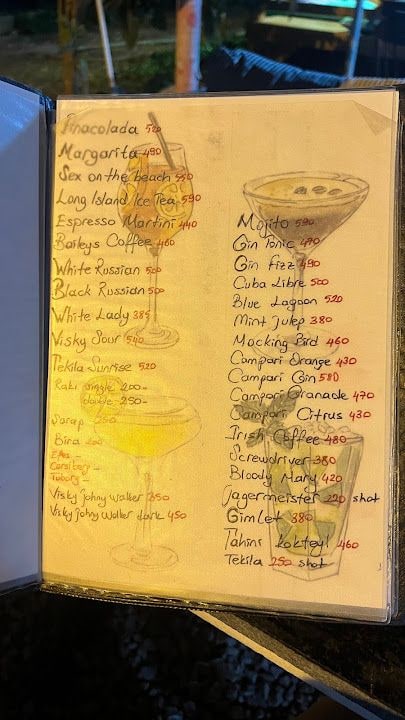 Pinacolada 520
Margarita 490
Sex on the beach 550
Long Island Ice Tea 590
Espresso Martini 440
Baileys Coffee 460
White Russian 500
Black Russian 500
White Lady 385
Visky Sour 540
Tekila Sunrise 520
Rakı single 200-
double 250-
Şarap 250
Bira 200
Efes -
Carlsberg -
Tuborg -
Visky johny walker 350
Visky johny walker dark 450
Mojito 590
Gin Tonic 470
Gin Fizz 490
Cuba Libre 500
Blue Lagoon 520
Mint Julep 380
Mocking Bird 460
Campari Orange 430
Campari Gin 580
Campari Granade 470
Campari Citrus 430
Irish Coffee 480
Screwdriver 380
Bloody Mary 420
Jagermeister 220 shot
Gimlet 380
Tahini Kokteyl 460
Tekila 250 shot